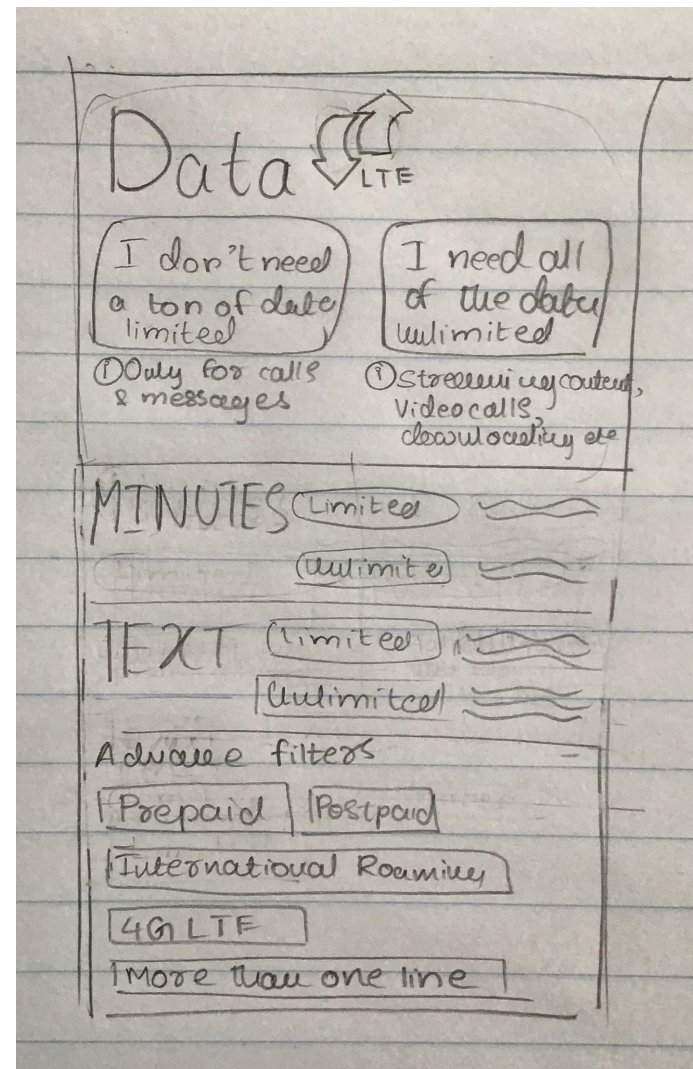 Data
LTE
I don't need
a ton of data
limited
I need all
of the data
Unlimited
ⓘ Only for calls
& messages
ⓘ Streaming content,
Video calls,
downloading etc
MINUTES Limited
Unlimite
TEXT Limited
Unlimited
Advance filters
Prepaid Postpaid
International Roaming
4G LTE
More than one line